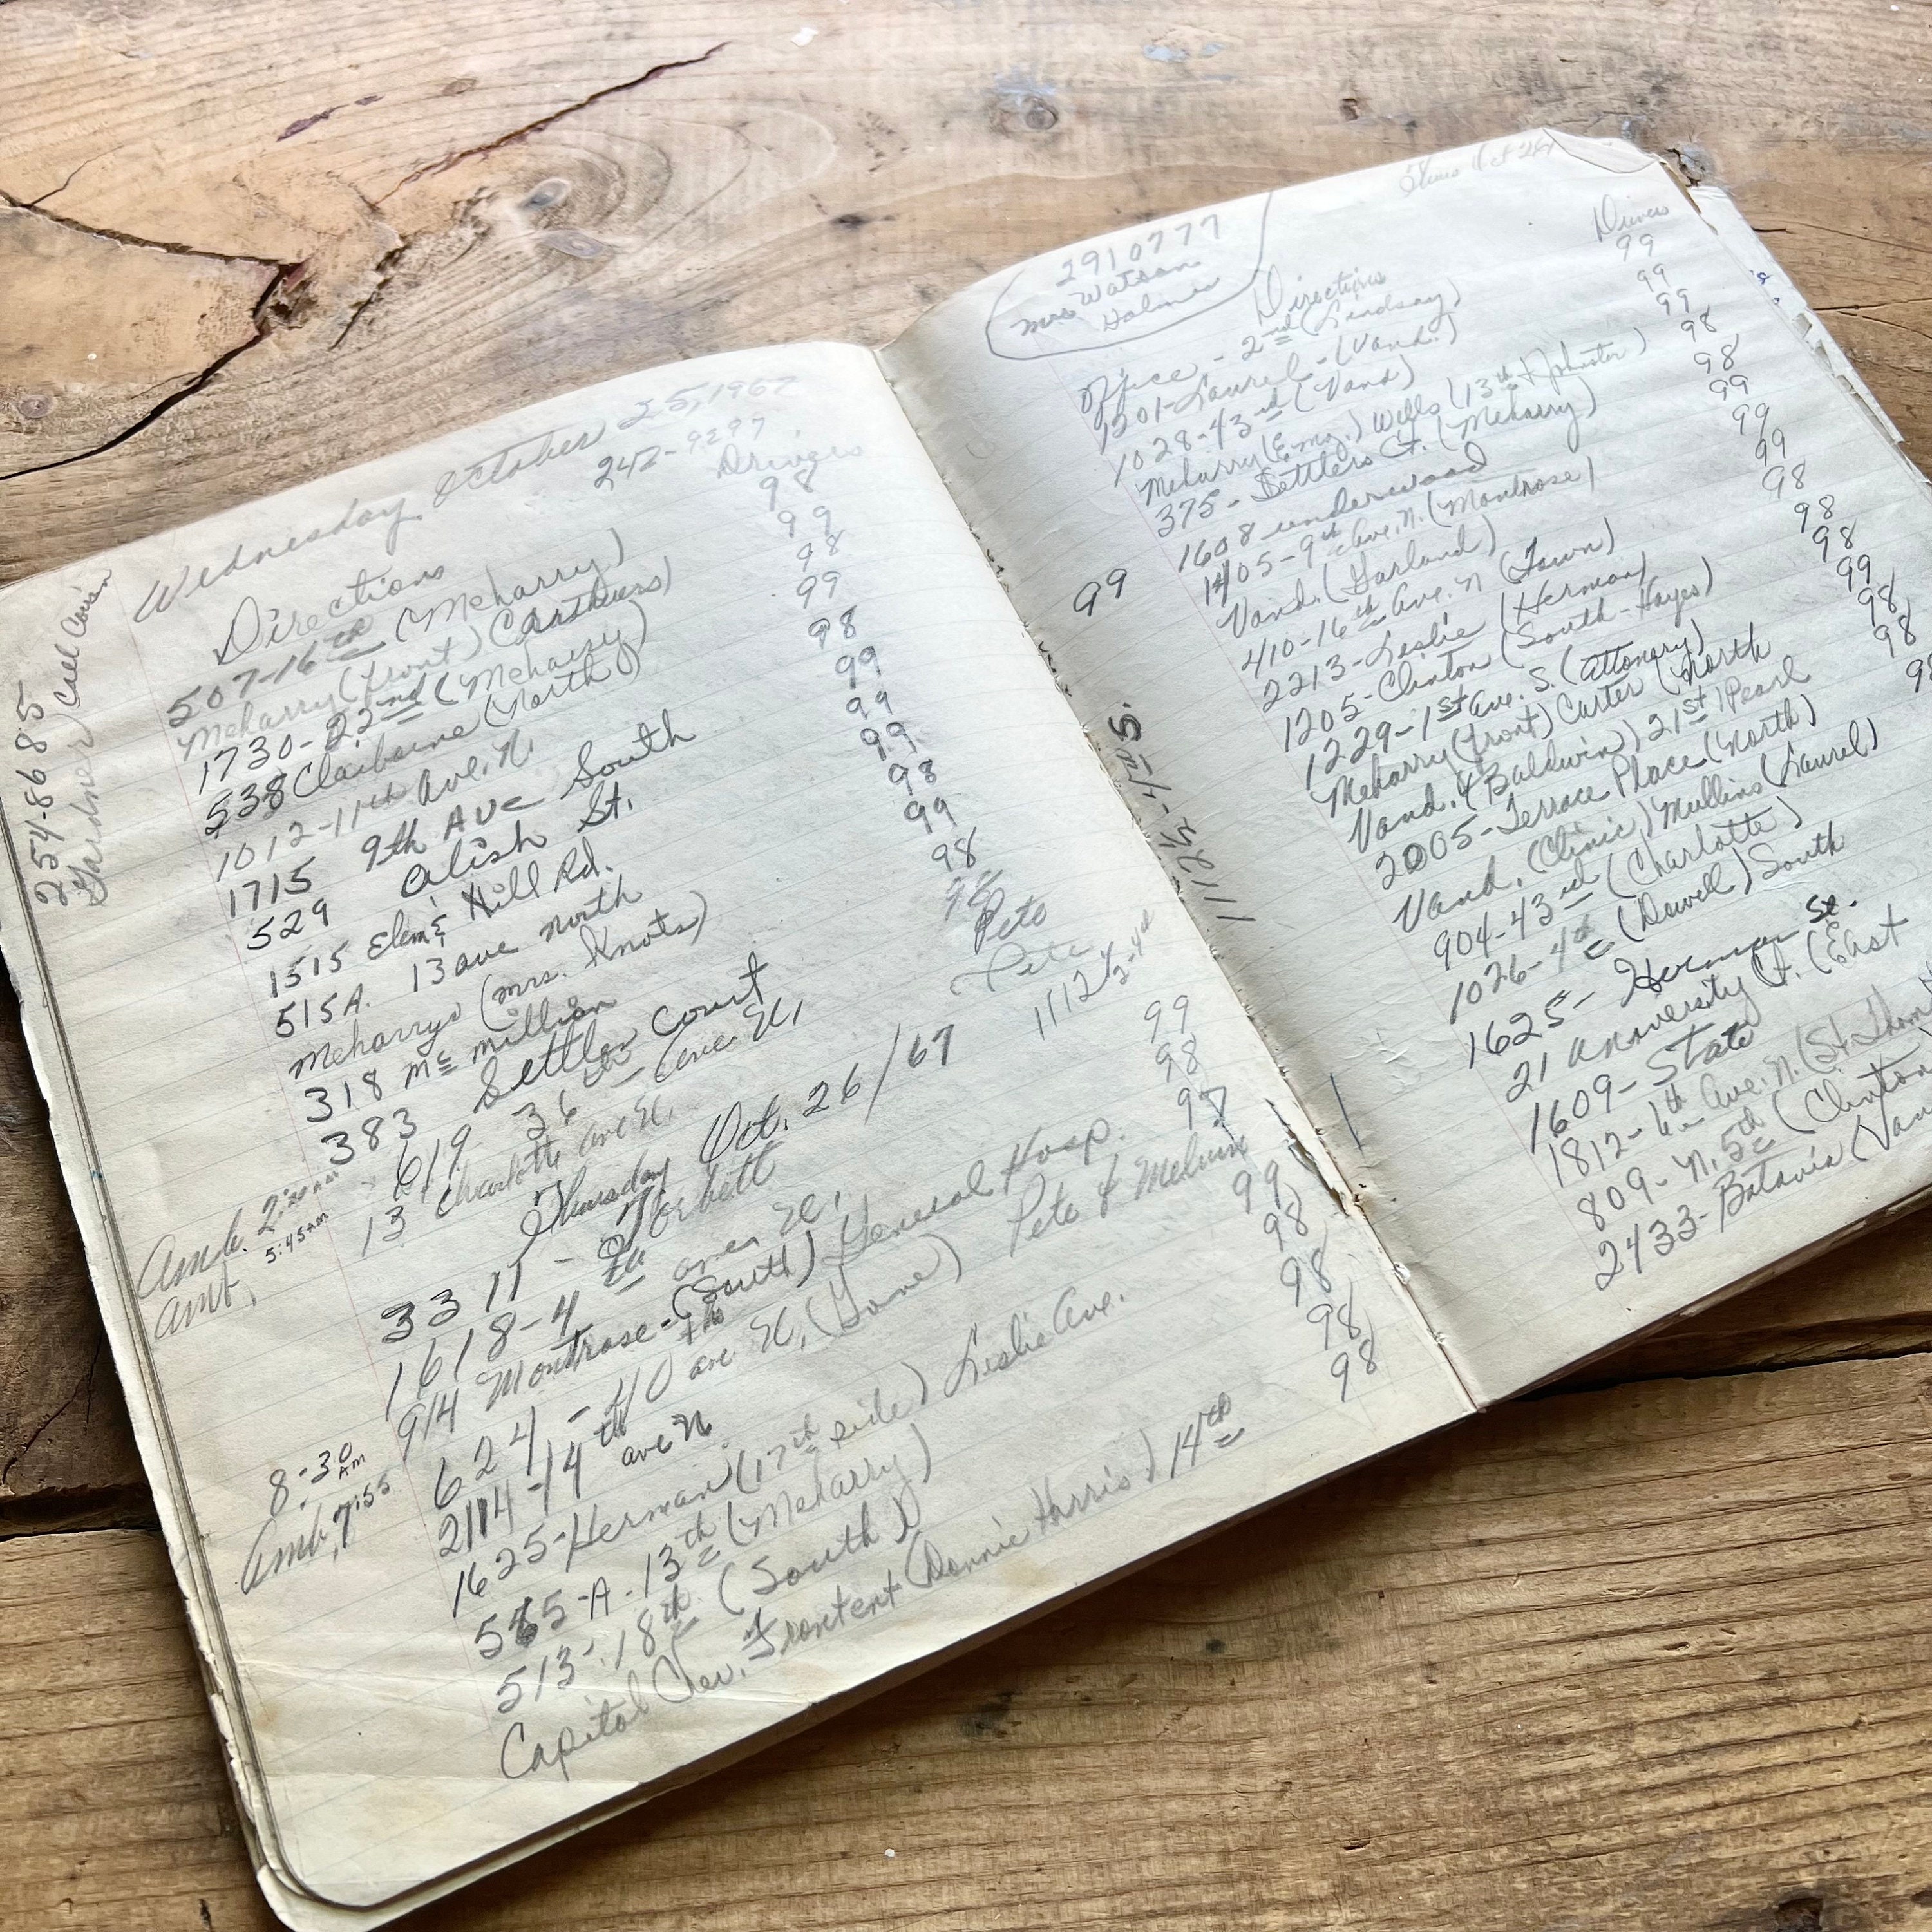 Wednesday, October 25, 1967
242-9297
Directions Drivers
254-8685
Gardner Call Cousin
507-16th (Meharry) 98
Meharry (front) Carthuers) 99
1730-22nd (Meharry) 98
538 Claiborne (North) 99
1012-11th Ave. N. 98
1715 9th Ave South 99
529 Alish St. 99
1515 Elem & Hill Rd. 99
515A. 13 ave north 98
Meharrys (Mrs. Knots) 99
318 Mc million 98
383 Settler Court 98
Amb. 2:30 AM 619 36th ave. N. Pete
Amb. 5:45 AM 13 + Charlotte ave N. Pete
Thursday Oct. 26/67 11124
2-4th
3311 - Torbett 99
1618-4th ave N. 98
914 Montrose - (South) General Hosp. 97
8:30 AM 624 - 40th ave N, (Gone) Pete & Melvin
Amb, 7:55 2114-14th ave N. 99
1625-Herman (17th side) Leslie Ave. 98
565-A-13th (Meharry) 98
513-18th (South) 98
Capitol Chev. Frontent (Donnie Harris) 14th 98
2910777
Mrs Watson
Holmes
Directions Drivers
Office - 2nd (Lindsay) 99
1201-Laurel-(Vand.) 99
1028-43rd (Vand) 99
Meharry (Emg.) Wells (13th & Johnston) 98
375-Settlers Ct. (Meharry) 98
1608 underwood 99
1405-9th Ave. N. (Montrose) 99
99 Vand. (Garland) 99
410-16th Ave. N (Town) 98
2213-Leslie (Herman) 98
1205-Clinton (South-Hayes) 98
1229-1st Ave. S. (Attonery) 99
Meharry (front) Carter (North 98
Vand. (Baldwin) 21st Pearl 98
2005-Terrace Place (North)
11125-1st S.
Vand. (Clinic) Mullins (Laurel)
904-43rd (Charlotte)
1026-4th (Dowell) South
1625- Herman St.
21 University Ct. (East
1609-State
1812-6th Ave. N. (St. Thom
809-N. 5th (Clinton
2433-Batavia (Van